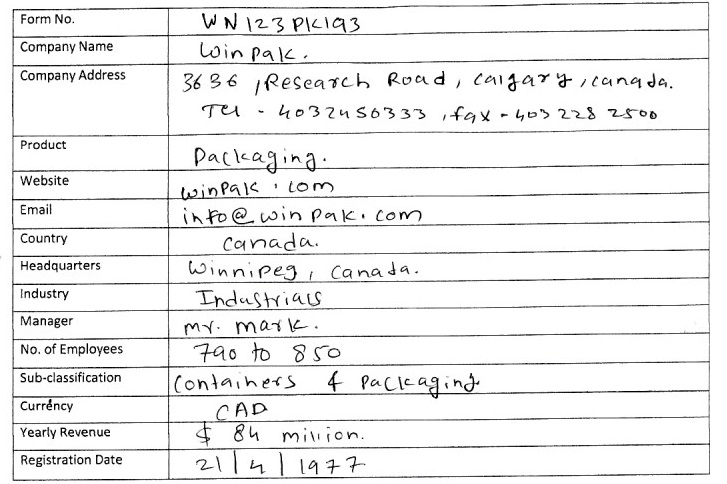 Form No. WN123PK193
Company Name Winpak.
Company Address 3636, Research Road, Calgary, Canada.
Tel - 4032450333, fax - 403 228 2500
Product Packaging.
Website winpak.com
Email info@winpak.com
Country Canada.
Headquarters Winnipeg, Canada.
Industry Industrials
Manager mr. mark.
No. of Employees 790 to 850
Sub-classification Containers & Packaging
Currency CAD
Yearly Revenue $ 84 million.
Registration Date 21/4/1977